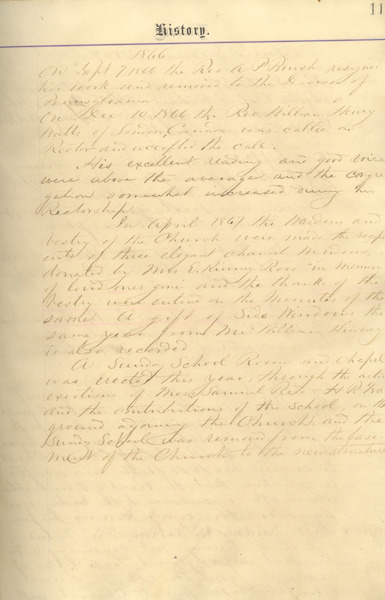 11
History.
1866
On Sept 7 1866 the Rev A P resigned
his work and removed to the Diocese of
Pennsylvania
On Dec 10 1866 the Rev William Henry
of was called as
Rector and accepted the call.
His excellent reading and good voice
were above the average and the congre
gation somewhat increased during his
Rectorship.
In April 1867 the Wardens and
Vestry of the Church were made the recipi
ents of three elegant Chancel Windows,
donated by Miss E. Rose "in memory
of loved ones gone" and the thanks of the
Vestry were entered on the Minutes of the
same. A gift of Side Windows the
same year from Mr William
is also recorded.
A Sunday School Room and Chapel
was erected this year, through the
exertions of Mess Samuel H. R.
and the contributions of the School, on the
ground the Church, and the
Sunday School was removed from the base
ment of the Church to the new structure